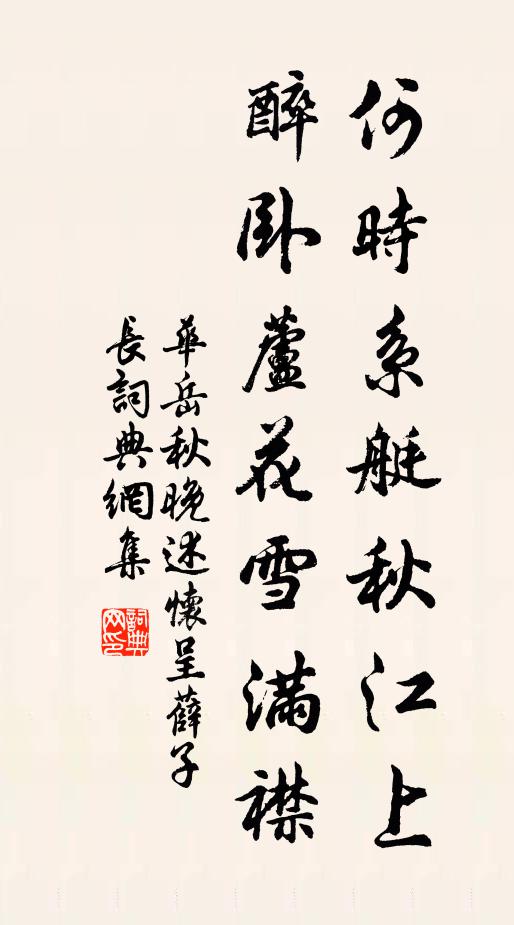 何時系艇秋江上
醉卧蘆花雪滿襟
華岳秋晚述懷呈薛子
長詞典網集
詞典
网印